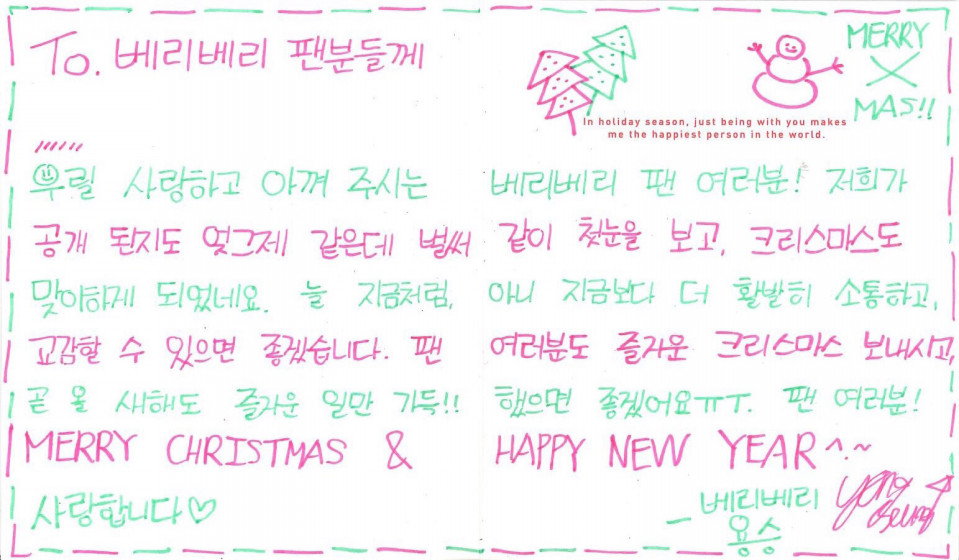 To. 베리베리 팬분들께
MERRY
X
MAS!!
In holiday season, just being with you makes
me the happiest person in the world.
우릴 사랑하고 아껴 주시는 베리베리 팬 여러분! 저희가
공개 된지도 엊그제 같은데 벌써 같이 첫눈을 보고, 크리스마스도
맞이하게 되었네요. 늘 지금처럼, 아니 지금보다 더 활발히 소통하고,
교감할 수 있으면 좋겠습니다. 팬 여러분도 즐거운 크리스마스 보내시고,
곧 올 새해도 즐거운 일만 가득!! 했으면 좋겠어요ㅠㅜ. 팬 여러분!
MERRY CHRISTMAS & HAPPY NEW YEAR ^.~
사랑합니다♡
베리베리
- 용승
Yong Seung